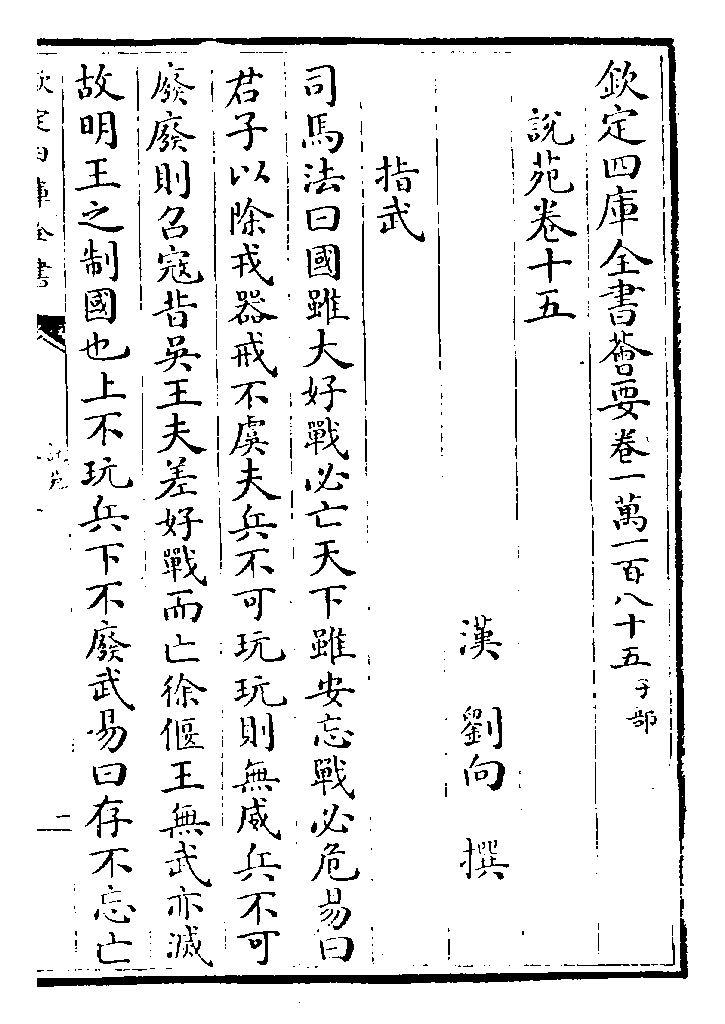 欽定四庫全書薈要卷一萬一百八十五子部
說苑卷十五
漢　劉向　撰
指武
司馬法曰國雖大好戰必亡天下雖安忘戰必危易曰
君子以除戎器戒不虞夫兵不可玩玩則無威兵不可
廢廢則召寇昔吳王夫差好戰而亡徐偃王無武亦滅
故明王之制國也上不玩兵下不廢武易曰存不忘亡
欽定四庫全書
說苑
二